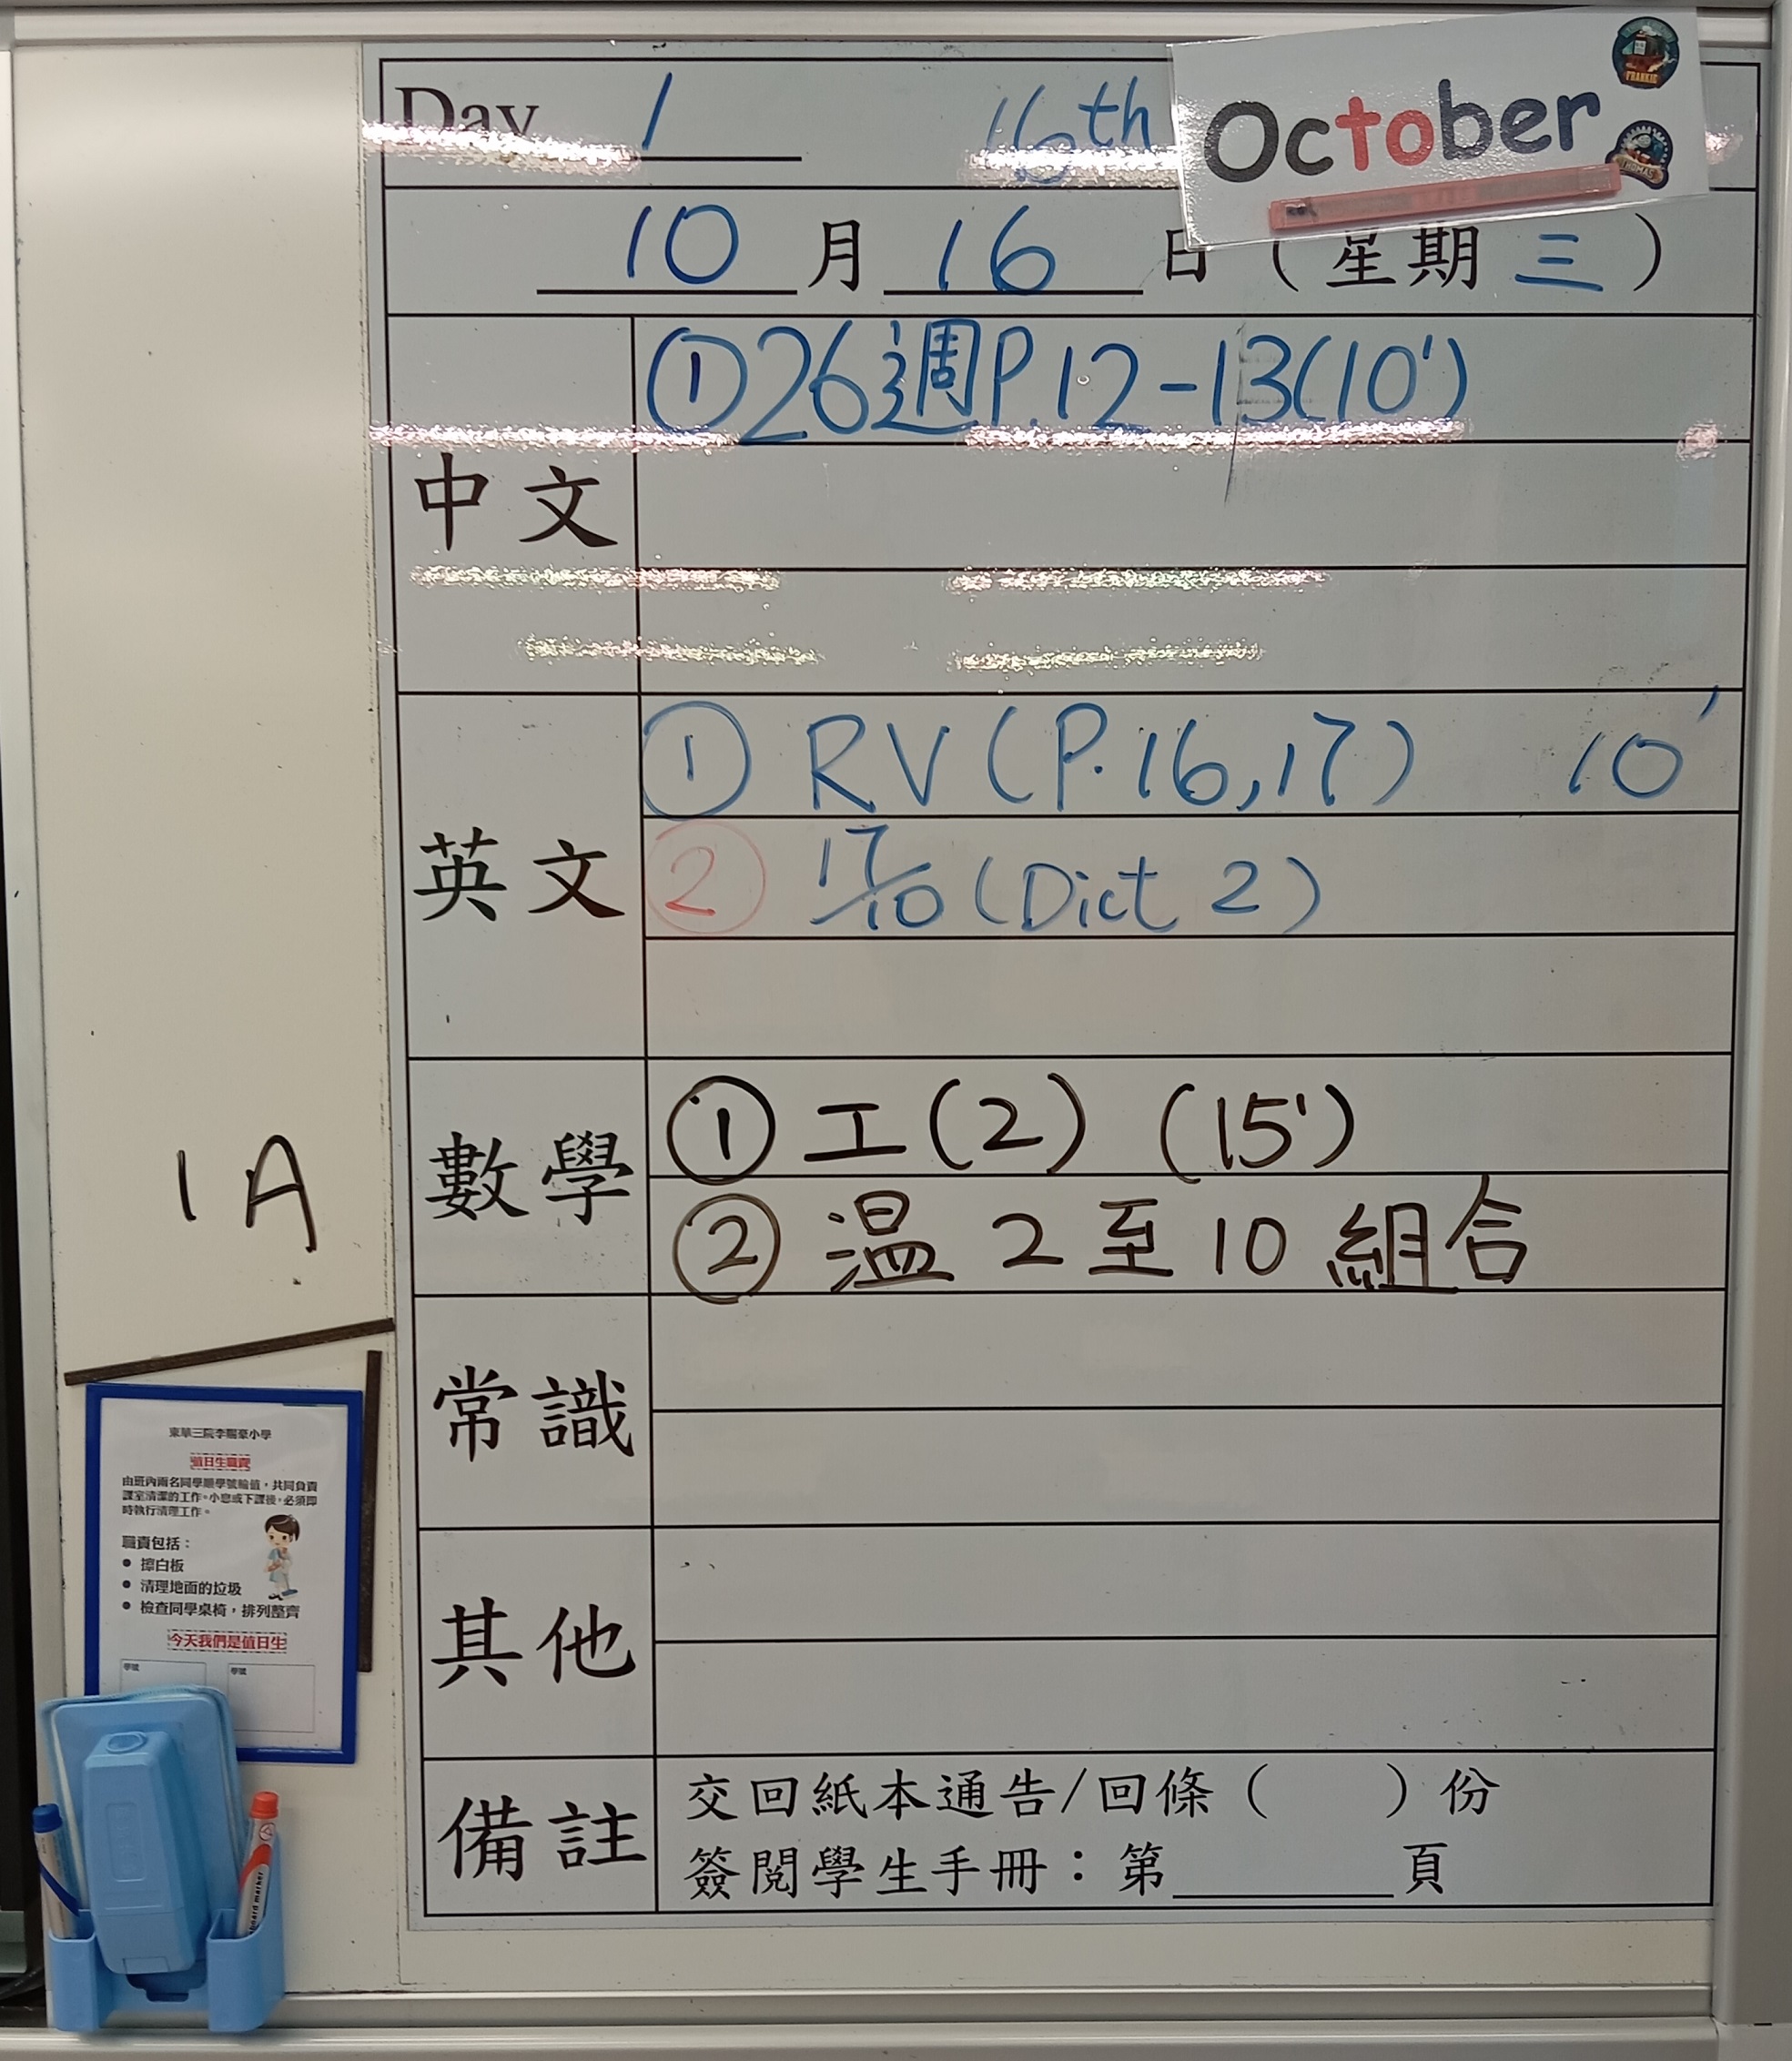 Day 1 16th October
FRANKIE
THOMAS
10 月 16 日 ( 星期 三 )
①26週P.12-13(10')
中文
① RV (P.16,17) 10'
英文
② 17/10 (Dict 2)
數學
① 工(2) (15')
② 温 2 至 10 組合
1A
常識
其他
備註
交回紙本通告/回條 ( ) 份
簽閱學生手冊：第______頁
東華三院李賜豪小學
值日生職責
由班內兩名同學順學號輪值，共同負責
課室清潔的工作。小息或下課後，必須即
時執行清理工作。
職責包括：
● 擦白板
● 清理地面的垃圾
● 檢查同學桌椅，排列整齊
今天我們是值日生
學號 學號
board marker